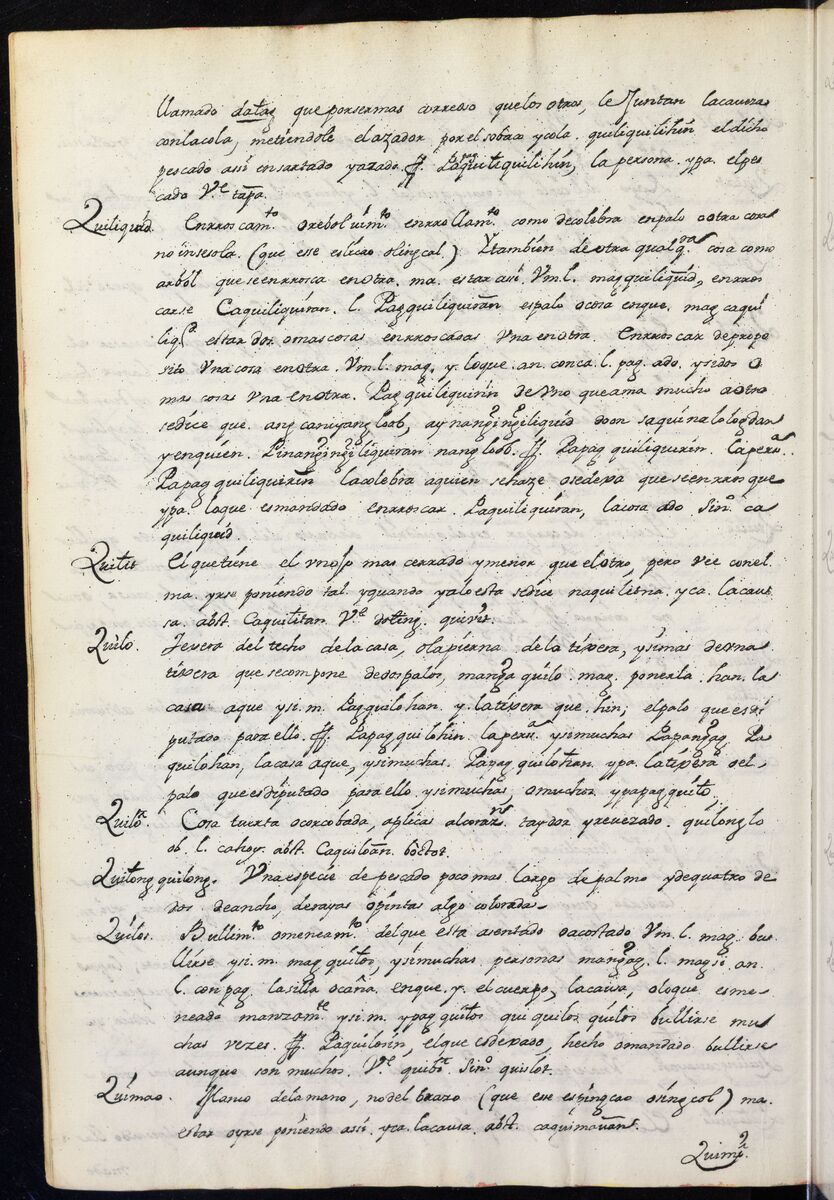 llamado datag que porsermas correoso quelos otros, le Juntan lacaveza
conlacola, metiendole elazador porel sobraz ycola. quiliquilihin el dicho
pescado assi ensartado yazado. Paquiliquilihin, la persona. ypa. elpes
cado V.e tapa.
Quiliquid. Enrroscam.to orebolvim.to enrrollam.to como decolebra enpalo o otra cosa
no insesola. (que esse es licao olingcal.) Ytambien deotra qualq.ra cosa como
arbol que seenrrosca enotra. ma. estar assi. Vm. l. magquiliquid, enrros
carse Caquiliquiran. l. Pagquiliquiran espalo ocosa enque. mag caqui
liq.d estar dos. omascosas enrroscadas Vna enotra. Enrroscar depropo
sito Vna cosa enotra. Vm. l. mag. y. loque. an. conca. l. pag. ado. ysidos o
mas cosas Vna enotra. Pagquiliquirin de Vno queama mucho aotro
sedice que. ang caniyang loob, ay nangingiliquid doon saquinalologdan
yenquien. Pinangingiliquiran nang loob. Papag quiliquirin. laper.a
Papag quiliquirin lacolebra aquien sehaze osedexa que seenrrosque
ypa. loque esmandado enrroscar. Paquiliquiran, lacosa ado Sin.o ca
quiliquid.
Quilis El quetiene el vnojo mas cerrado ymenor que elotro, pero vee conel.
ma. yrse poniendo tal yquando yaloesta sedice naquilisna. yca. lacau
sa. abst. Caquilisan V.e doling. quiris.
Quilo. Texera del techo delacasa, olapierna dela tixera, ysimas devna
tixera que secompone dedospalos, manga quilo. mag. ponerla. han. la
casa aque ysi. m. Pagquilohan y. latixera que. hin; elpalo que es di
putado paraello. Papagquilohin. laper.a ysimuchas Papangag Pa
quilohan, lacasa aque, ysimuchas. Papag quilohan. ypa. latixera del
palo que esdiputado paraello. ysimuchas, omuchos ypapagquilo.
Quilo. Cosa tuerta ocorcobada, aplicas alcoraz.n traydor yrevezado. quilong lo
ob. l. cahoy. abst. Caquiloan. boctot.
Quilong quilong. Vnaespecie de pescado pocomas largo de palmo ydequatro de
dos deancho, derayas opintas algo coloradas
Quilos. Bullim.to omeneam.to delque esta asentado oacostado Vm. l. mag. bu
llirse ysi. m. mag quilos, ysimuchas personas mangag. l. magsi. an.
l. con pag. lasilla ocama, enque. y. el cuerpo, lacausa, oloque esme
neado manzam.te ysi. m. ypagquilos qui quilos quilos bullirse mu
chas vezes. Paquilosin, elque esdexado, hecho omandado bullirse
aunque son muchos. V.e quibo. Sin.o quislot.
Quimao. Manco delamano, nodel brazo (que esse espingcao osingcol) ma.
estar oyrse poniendo assi. yca. lacausa. abst. caquimauan.
Quimi.